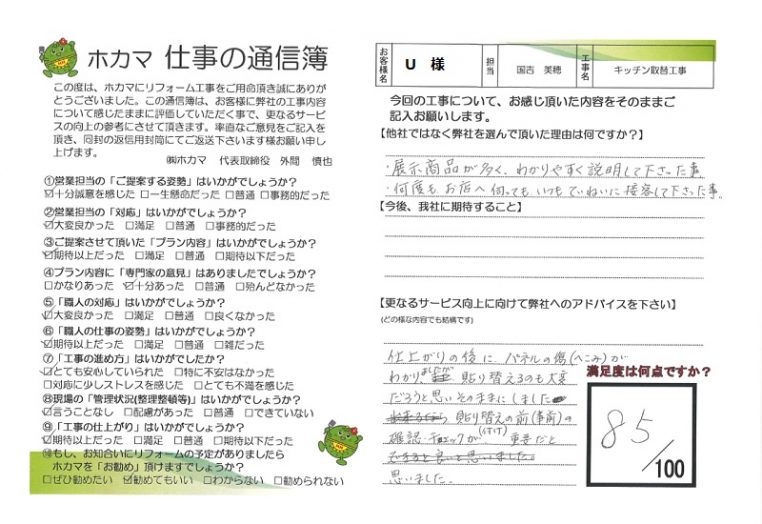 ホカマ 仕事の通信簿
この度は、ホカマにリフォーム工事をご用命頂き誠にありが
とうございました。この通信簿は、お客様に弊社の工事内容
について感じたままに評価していただく事で、更なるサービ
スの向上の参考にさせて頂きます。率直なご意見をご記入を
頂き、同封の返信用封筒にてご返送下さいます様お願い申し
上げます。
㈱ホカマ 代表取締役 外間 慎也
①営業担当の「ご提案する姿勢」はいかがでしょうか?
☑十分誠意を感じた □一生懸命だった □普通 □事務的だった
②営業担当の「対応」はいかがでしょうか?
☑大変良かった □満足 □普通 □事務的だった
③ご提案させて頂いた「プラン内容」はいかがでしょうか?
☑期待以上だった □満足 □普通 □期待以下だった
④プラン内容に「専門家の意見」はありましたでしょうか?
□かなりあった ☑十分あった □普通 □殆んどなかった
⑤「職人の対応」はいかがでしょうか?
☑大変良かった □満足 □普通 □良くなかった
⑥「職人の仕事の姿勢」はいかがでしたか?
☑期待以上だった □満足 □普通 □雑だった
⑦「工事の進め方」はいかがでしたか?
☑とても安心していられた □特に不安はなかった
□対応に少しストレスを感じた □とても不満を感じた
⑧現場の「管理状況(整理整頓等)」はいかがでしょうか?
☑言うことなし □配慮があった □普通 □できていない
⑨「工事の仕上がり」はいかがでしょうか?
☑期待以上だった □満足 □普通 □期待以下だった
⑩もし、お知合いにリフォームの予定がありましたら
ホカマを「お勧め」頂けますでしょうか?
□ぜひ勧めたい ☑勧めてもいい □わからない □勧められない
お客様名 U 様 担当 国吉 美穂 工事名 キッチン取替工事
今回の工事について、お感じ頂いた内容をそのままご
記入お願いします。
【他社ではなく弊社を選んで頂いた理由は何ですか?】
・展示商品が多く、わかりやすく説明して下さった事
・何度もお店へ伺ってもいつもていねいに接客して下さった事。
【今後、我社に期待すること】
【更なるサービス向上に向けて弊社へのアドバイスを下さい】
(どの様な内容でも結構です)
仕上がりの後に パネルの傷(へこみ)が
わかりましたが 貼り替えるのも大変
だろうと思いそのままにしました
貼替えの前(事前)の
確認 チェックが(付け) 重要だと
思いました。
満足度は何点ですか?
85/100